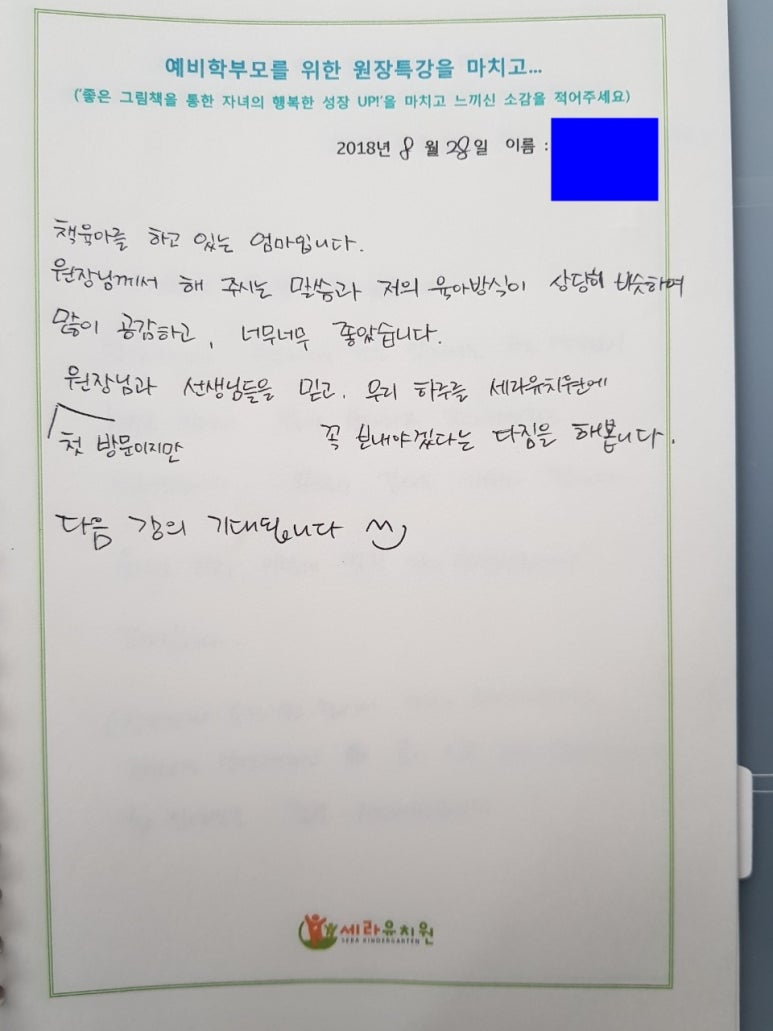 예비학부모를 위한 원장특강을 마치고...
('좋은 그림책을 통한 자녀의 행복한 성장 UP!'을 마치고 느끼신 소감을 적어주세요)
2018년 8 월 28일 이름 :
책육아를 하고 있는 엄마입니다.
원장님께서 해 주시는 말씀과 저의 육아방식이 상당히 비슷하며
많이 공감하고, 너무너무 좋았습니다.
원장님과 선생님들을 믿고. 우리 하주를 세라유치원에
첫 방문이지만 꼭 보내야겠다는 다짐을 해봅니다.
다음 강의 기대됩니다
세라유치원
SERA KINDERGARTEN